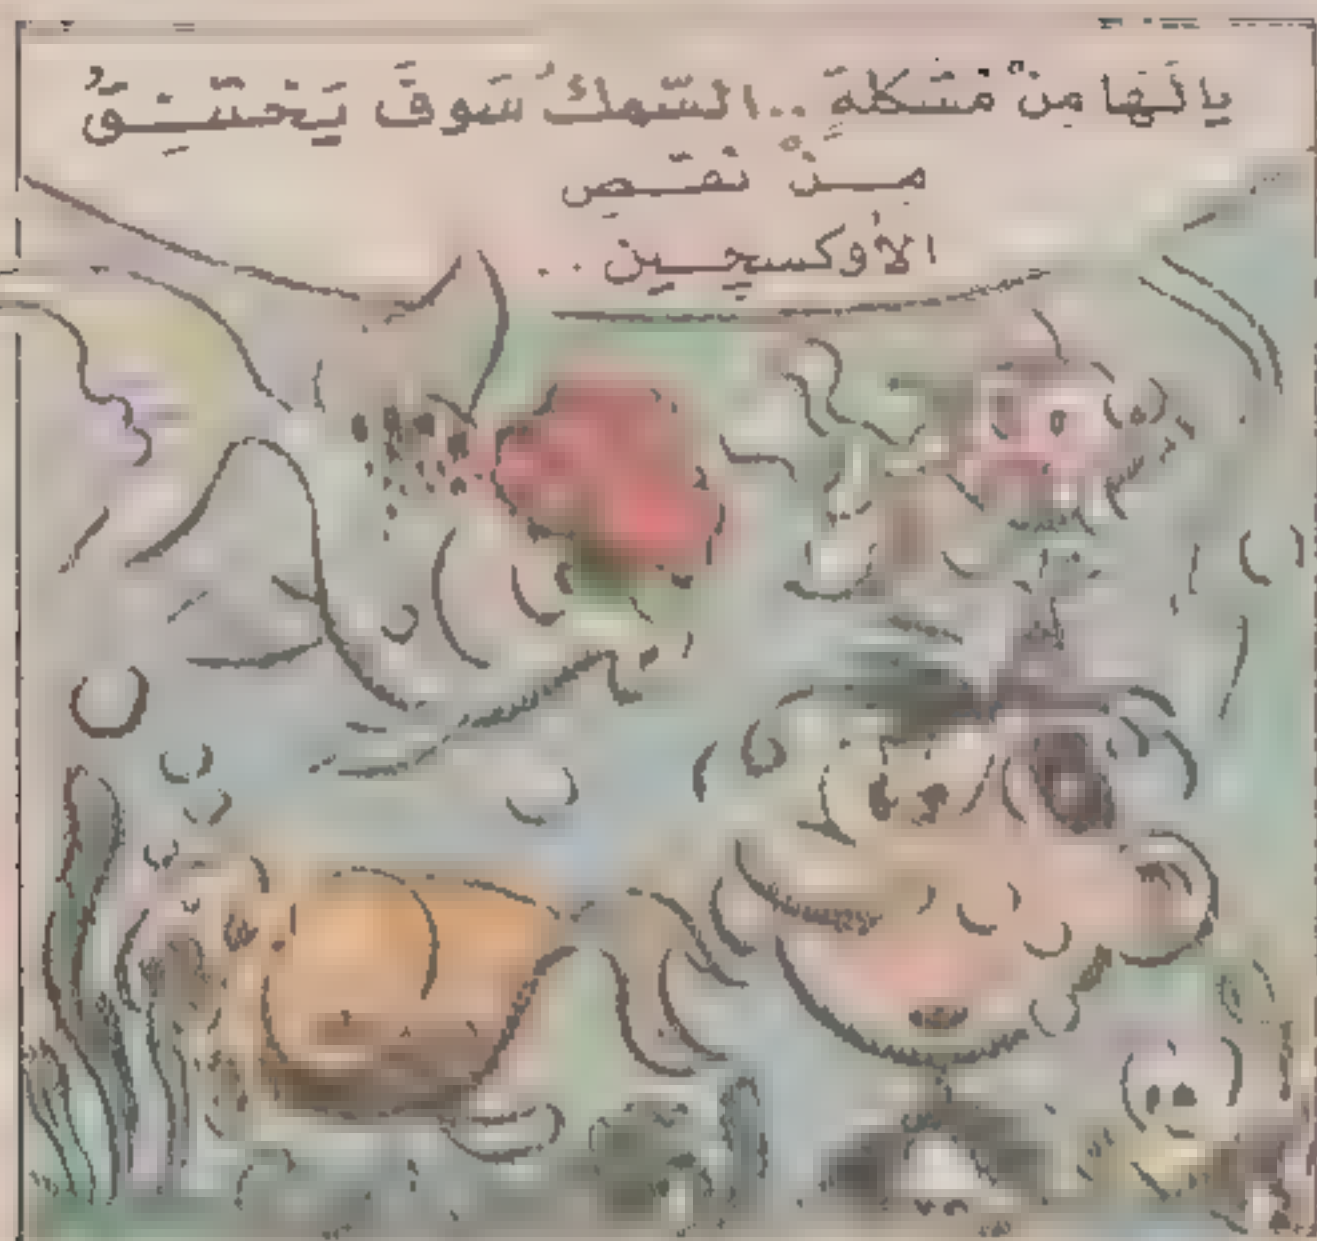 يالَها مِنْ مُشكلةٍ .. السّمكُ سَوفَ يَختنِقُ
مِنْ نَقصِ
الأوكسجين ..